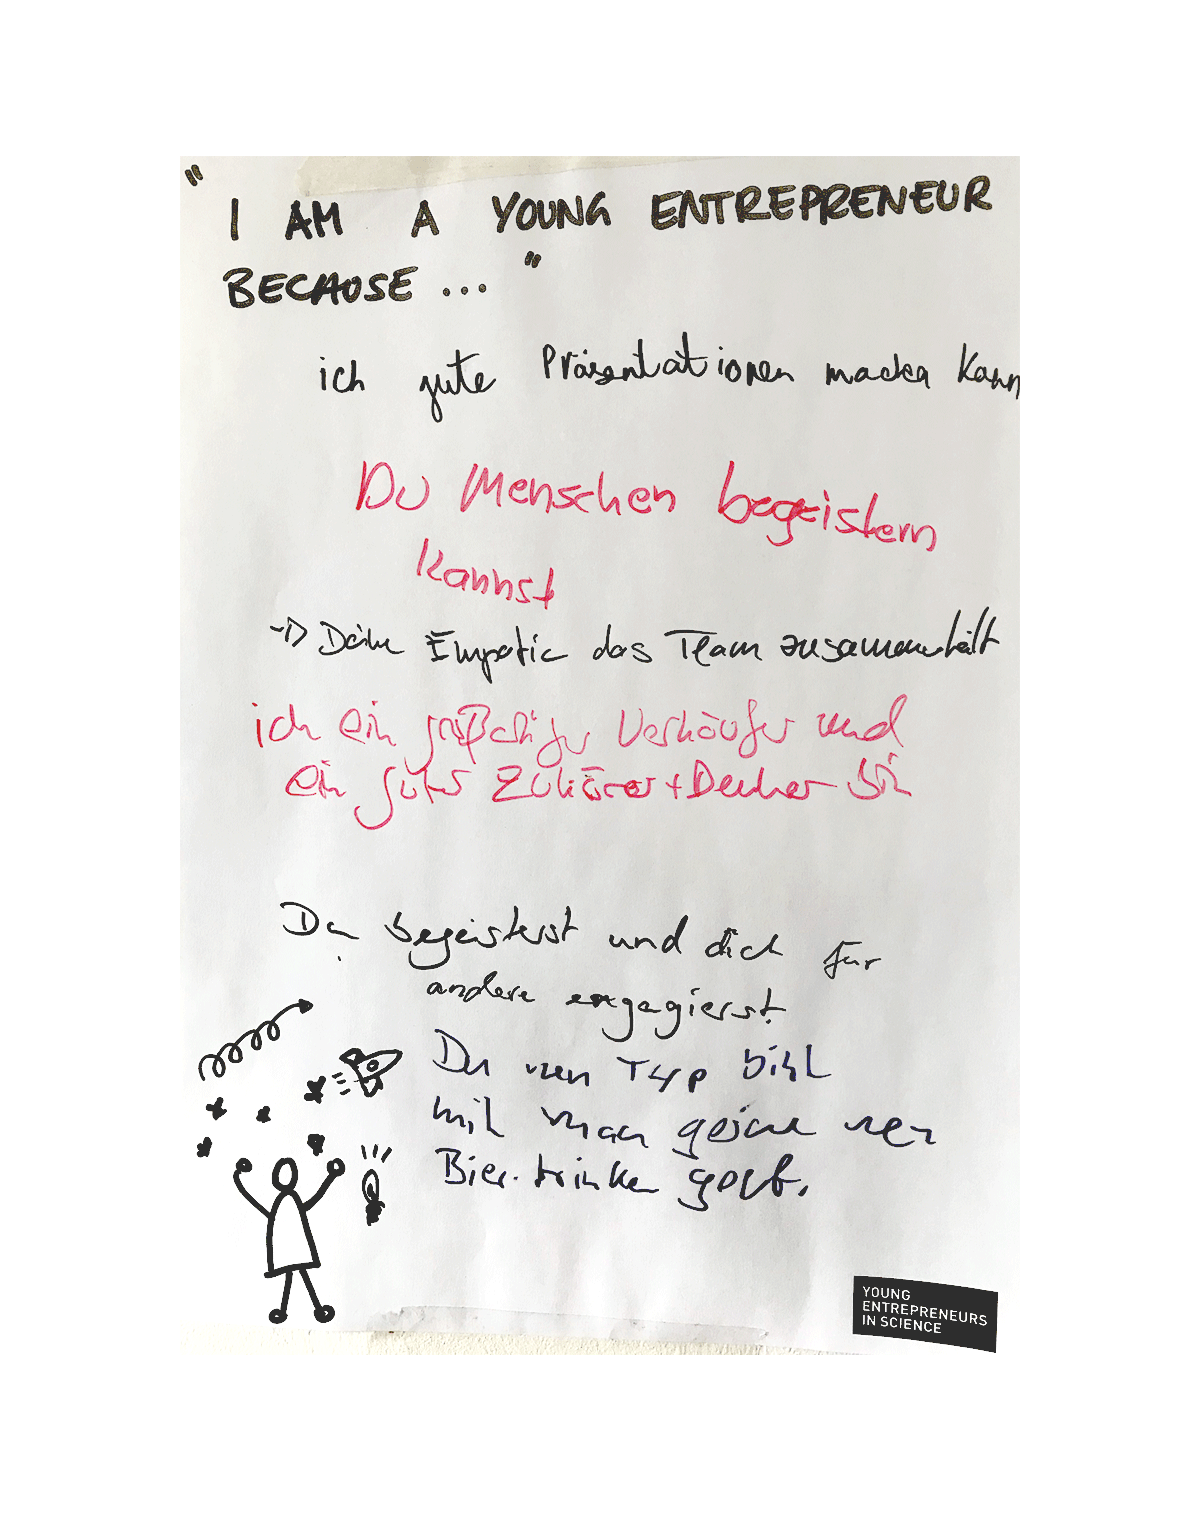 "I AM A YOUNG ENTREPRENEUR
BECAUSE ..."
ich gute Präsentationen machen kann
Du Menschen begeistern
kannst
→ Deine Empatie das Team zusammenhält
ich ein großartiger Verkäufer und
ein guter Zuhörer + Denker bin
Du begeisterst und dich für
andere engagierst
Du Typ bist
mit man gerne
Bier trinken geht.
YOUNG
ENTREPRENEURS
IN SCIENCE